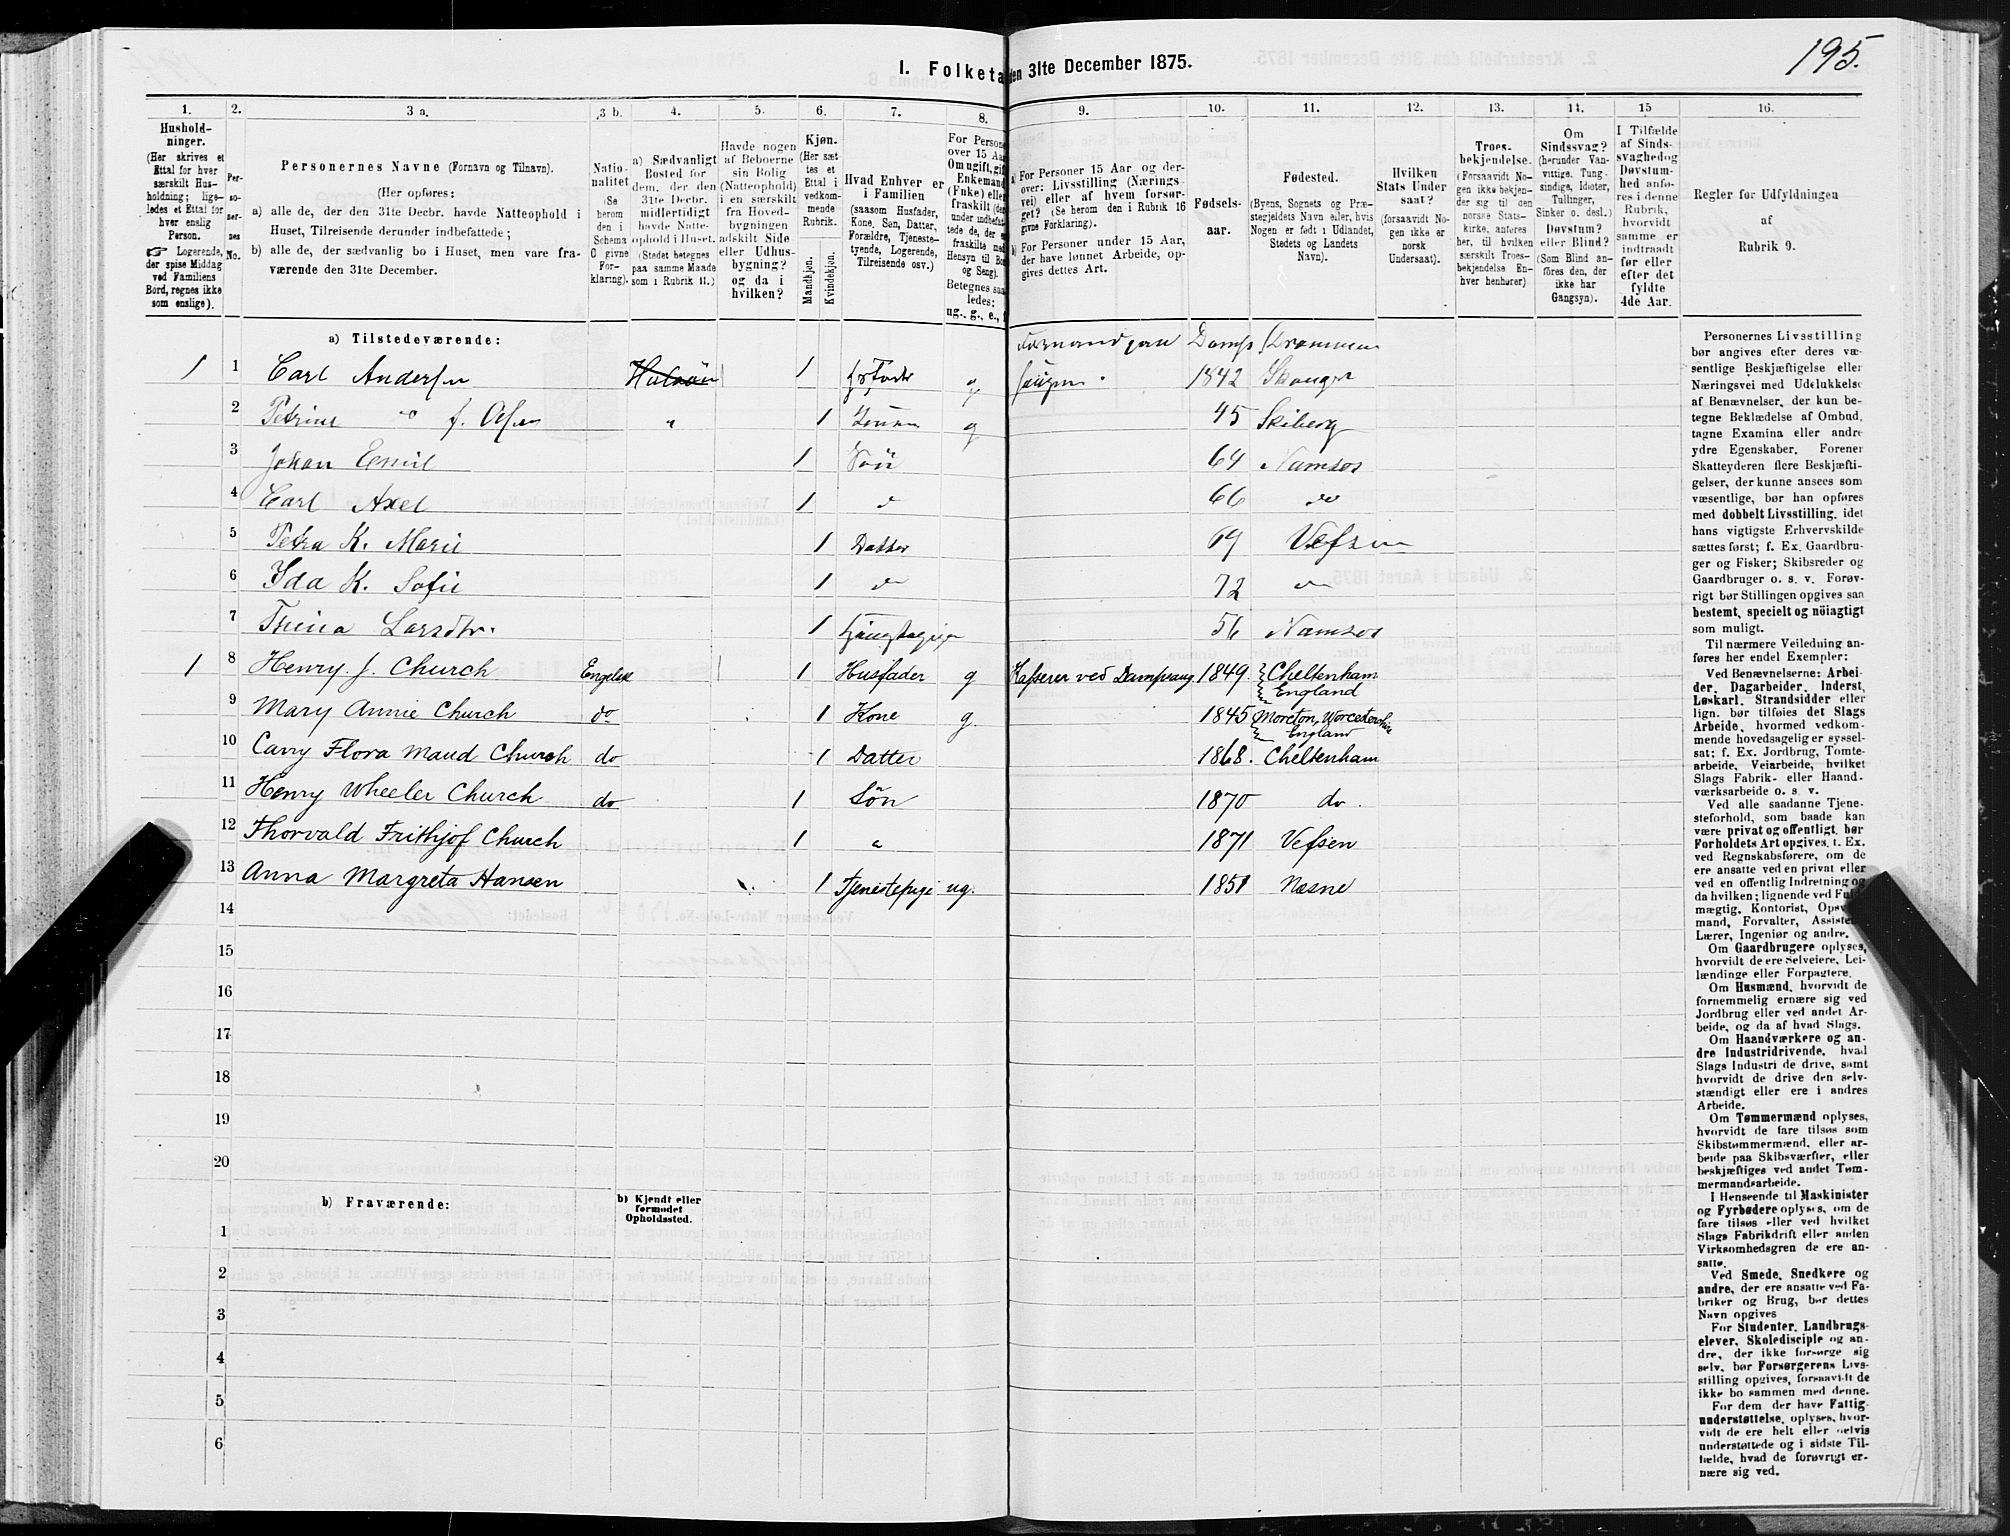 195.
I. Folketa
den 31te December 1875.
1. 2. 3 a. 3 b. 4. 5. 6. 7. 8. 9. 10. 11. 12. 13. 14. 15 16.
Hushold-
ninger.
(Her skrives et
Ettal for hver
særskilt Hus-
holdning; lige-
ledes et Ettal for
hver enslig
Person.
☞ Logerende,
der spise Middag
ved Familiens
Bord, regnes ikke
som enslige).
Per-
so-
ner-
nes
No.
Personernes Navne (Fornavn og Tilnavn).
(Her opføres:
a) alle de, der den 31te Decbr. havde Natteophold i
Huset, Tilreisende derunder indbefattede;
b) alle de, der sædvanlig bo i Huset, men vare fra-
værende den 31te December.
Natio-
nalitet
(Se
herom
den i
Schema
C givne
For-
klaring).
a) Sædvanligt
Bosted for
dem, der den
31te Decbr.
midlertidigt
havde Natte-
ophold i Huset.
(Stedet betegnes
paa samme Maade
som i Rubrik 11.)
Havde nogen
af Beboerne
sin Bolig
(Natteophold)
i en særskilt
fra Hoved-
bygningen
adskilt Side
eller Udhus-
bygning?
og da i
hvilken?
Kjøn.
(Her sæt
tes et
Ettal i
vedkom-
mende
Rubrik.
Mandkjøn.
Kvindekjøn.
Hvad Enhver er
i Familien
(saasom Husfader,
Kone, Søn, Datter,
Forældre, Tjeneste-
tyende, Logerende,
Tilreisende osv.)
For Persone
over 15 Aa
Om ugift, gif
Enkemand
(Fnke) elle
fraskilt (de
under indbefat
tede de, der e
fraskilte me
Hensyn til Bo
og Seng).
Betegnes saa
ledes:
ug., g., e.,
a) For Personer 15 Aar og der-
over: Livsstilling (Nærings-
vei) eller af hvem forsør-
get? (Se herom den i Rubrik 16
givne Forklaring).
b) For Personer under 15 Aar,
der have lønnet Arbeide, op-
gives dettes Art.
Fødsels-
aar.
Fødested.
(Byens, Sognets og Præ-
stegjeldets Navn eller, hvis
Nogen er født i Udlandet,
Stedets og Landets
Navn).
Hvilken
Stats Under
saat?
(forsaavidt No-
gen ikke er
norsk
Undersaat).
Troes-
bekjendelse.
(Forsaavidt No-
gen ikke bekjen-
der sig til den
norske Stats-
kirke, anføres
her, til hvilken
særskilt Troes-
bekjendelse En-
hver henhører)
Om
Sindssvag?
(herunder Van-
vittige, Tung-
sindige, Idioter,
Tullinger,
Sinker o. desl.)
Døvstum?
eller Blind?
(Som Blind an-
føres den, der
ikke har
Gangsyn).
I Tilfælde
af Sinds-
svaghed og
Døvstum-
hed anfø-
res i denne
Rubrik,
hvorvidt
samme er
indtraadt
før eller
efter det
fyldte
4de Aar.
Regler for Udfyldningen
af
Rubrik 9.
a) Tilstedeværende:
Formand paa Damp Drammen
1 1 Carl Andersen 1 g saugen. 1842 Skauger
2 Petrine f. Olsen " 1 g 45 Skiberg
3 Johan Eemil 1 Søn 64 Namsos
4 Carl Axel 1 66 do
5 Petra K. Marie 1 Datter 69 Vefsen
6 Ida K. Sofie 1 72
7 Trina Larsdtr. 1 56 Namsos
1 8 Henry. J. Church Engelsk 1 Husfader g Kasserer ved Dampsaug. 1849. Cheltenham
England
9 Mary Annie Church do 1 Kone g. 1845 Moreton, Worcestershire
England
10 Carry Flora Maud Church do 1 Datter 1868. Cheltenham
11 Henry Wheeler Church do 1 Søn 1870 do.
12 Thorvald Frithjof Church 1 1871 Vefsen
13 Anna Margreta Hansen 1 Tjenestepige ug. 1851 Næsne
14
15
16
17
18
19
20
b) Fraværende:
b) Kjendt eller
formodet
Opholdssted.
1
2
3
4
5
6
Personernes Livsstilling
bør angives efter deres væ-
sentlige Beskjæftigelse eller
Næringsvei med Udelukkelse
af Benævnelser, der kun be-
tegne Beklædelse af Ombud,
tagne Examina eller andre
ydre Egenskaber. Forener
Skatteyderen flere Beskjæfti-
gelser, der kunne ansees som
væsentlige, bør han opføres
med dobbelt Livsstilling, idet
hans vigtigste Erhvervskilde
sættes først; f. Ex. Gaardbru-
ger og Fisker; Skibsreder og
Gaardbruger o. s. v. Forøv-
rigt bør Stillingen opgives saa
bestemt, specielt og nöiagtigt
som muligt.
Til nærmere Veiledning an-
føres her endel Exempler:
Ved Benævnelserne: Arbei-
der, Dagarbeider, Inderst,
Løskarl, Strandsidder eller
lign. bør tilføies det Slags
Arbeide, hvormed vedkom-
mende hovedsagelig er syssel-
sat; f. Ex. Jordbrug, Tomte-
arbeide, Veiarbeide, hvilket
Slags Fabrik- eller Haand-
værksarbeide o. s. v.
Ved alle saadanne Tjene-
steforhold, som baade kan
være privat og offentligt, bør
Forholdets Art opgives, t. Ex.
ved Regnskabsførere, om de
ere ansatte ved en privat eller
ved en offentlig Indretning og
da hvilken; lignende ved Fuld-
mægtig, Kontorist, Opsyns-
mand, Forvalter, Assistent,
Lærer, Ingeniør og andre.
Om Gaardbrugere oplyses,
hvorvidt de ere Selveiere, Lei-
lændinge eller Forpagtere.
Om Husmænd, hvorvidt de
fornemmelig ernære sig ved
Jordbrug eller ved andet Ar-
beide, og da af hvad Slags.
Om Haandværkere og an-
dre Industridrivende, hvad
Slags Industri de drive, samt
hvorvidt de drive den selv-
stændigt eller ere i andres
Arbeide.
Om Tømmermænd oplyses,
hvorvidt de fare tilsøs som
Skibstømmermænd, eller ar-
beide paa Skibsværfter, eller
beskjæftiges ved andet Tøm-
mermandsarbeide.
I Henseende til Maskinister
og Fyrbødere oplyses, om de
fare tilsøs eller ved hvilket
Slags Fabrikdrift eller anden
Virksomhedsgren de ere an-
satte.
Ved Smede, Snedkere og
andre, der ere ansatte ved Fa-
briker og Brug, bør dettes
Navn opgives
For Studenter, Landbrugs-
elever, Skoledisciple og an-
dre, der ikke forsørge sig
selv, bør Forsørgerens Livs-
stilling opgives, forsaavidt de
ikke bo sammen med denne.
For dem, der have Fattig-
understøttelse, oplyses, hvor-
vidt de ere helt eller delvis
understøttede og i sidste Til-
fælde, hvad de forøvrigt er-
nære sig ved.